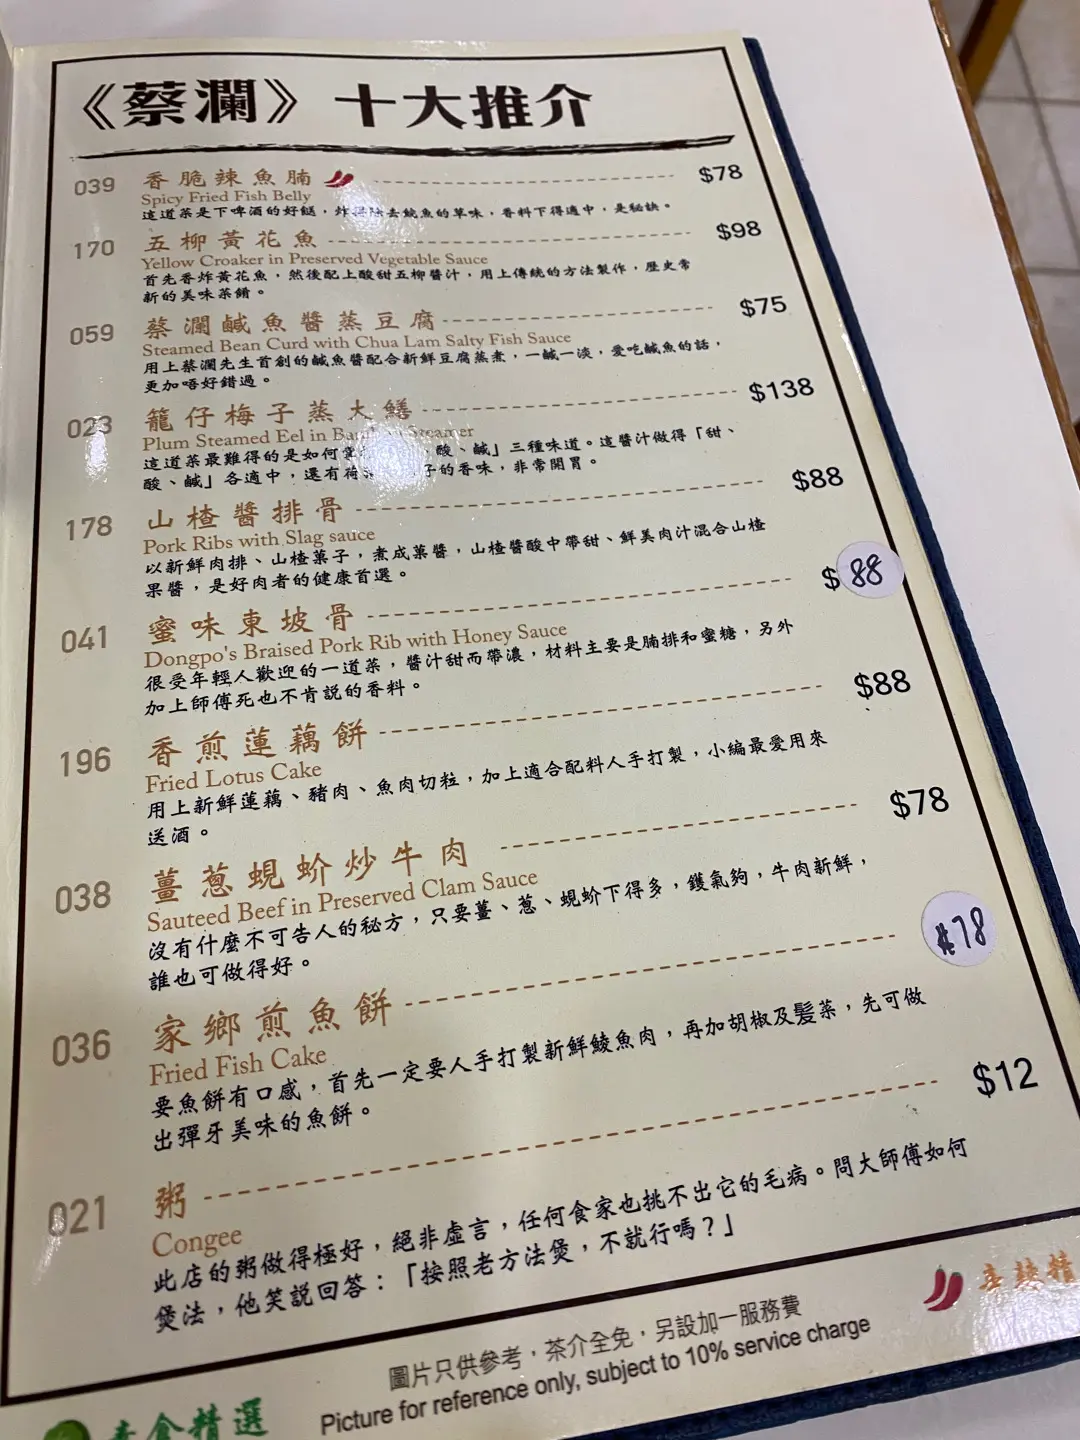 《蔡瀾》十大推介
039 香脆辣魚腩 $78
Spicy Fried Fish Belly
這道菜是下啤酒的好餸，炸 去鯇魚的草味，香料下得適中，是秘訣。
170 五柳黃花魚 $98
Yellow Croaker in Preserved Vegetable Sauce
首先香炸黃花魚，然後配上酸甜五柳醬汁，用上傳統的方法製作，歷史常
新的美味菜餚。
059 蔡瀾鹹魚醬蒸豆腐 $75
Steamed Bean Curd with Chua Lam Salty Fish Sauce
用上蔡瀾先生首創的鹹魚醬配合新鮮豆腐蒸煮，一鹹一淡，愛吃鹹魚的話，
更加唔好錯過。
023 籠仔梅子蒸大鱔 $138
Plum Steamed Eel in Steamer
這道菜最難得的是如何 、酸、鹹」三種味道。這醬汁做得「甜、
酸、鹹」各適中，還有荷 子的香味，非常開胃。
178 山楂醬排骨 $88
Pork Ribs with Slag sauce
以新鮮肉排、山楂菓子，煮成菓醬，山楂醬酸中帶甜、鮮美肉汁混合山楂
果醬，是好肉者的健康首選。
041 蜜味東坡骨 $88
Dongpo's Braised Pork Rib with Honey Sauce
很受年輕人歡迎的一道菜，醬汁甜而帶濃，材料主要是腩排和蜜糖，另外
加上師傅死也不肯説的香料。
196 香煎蓮藕餅 $88
Fried Lotus Cake
用上新鮮蓮藕、豬肉、魚肉切粒，加上適合配料人手打製，小編最愛用來
送酒。
038 薑蔥蜆蚧炒牛肉 $78
Sauteed Beef in Preserved Clam Sauce
沒有什麼不可告人的秘方，只要薑、蔥、蜆蚧下得多，鑊氣夠，牛肉新鮮，
誰也可做得好。
036 家鄉煎魚餅 $78
Fried Fish Cake
要魚餅有口感，首先一定要人手打製新鮮鯪魚肉，再加胡椒及髮菜，先可做
出彈牙美味的魚餅。
021 粥 $12
Congee
此店的粥做得極好，絕非虛言，任何食家也挑不出它的毛病。問大師傅如何
煲法，他笑説回答：「按照老方法煲，不就行嗎？」
圖片只供參考，茶介全免，另設加一服務費
Picture for reference only, subject to 10% service charge
素食精選